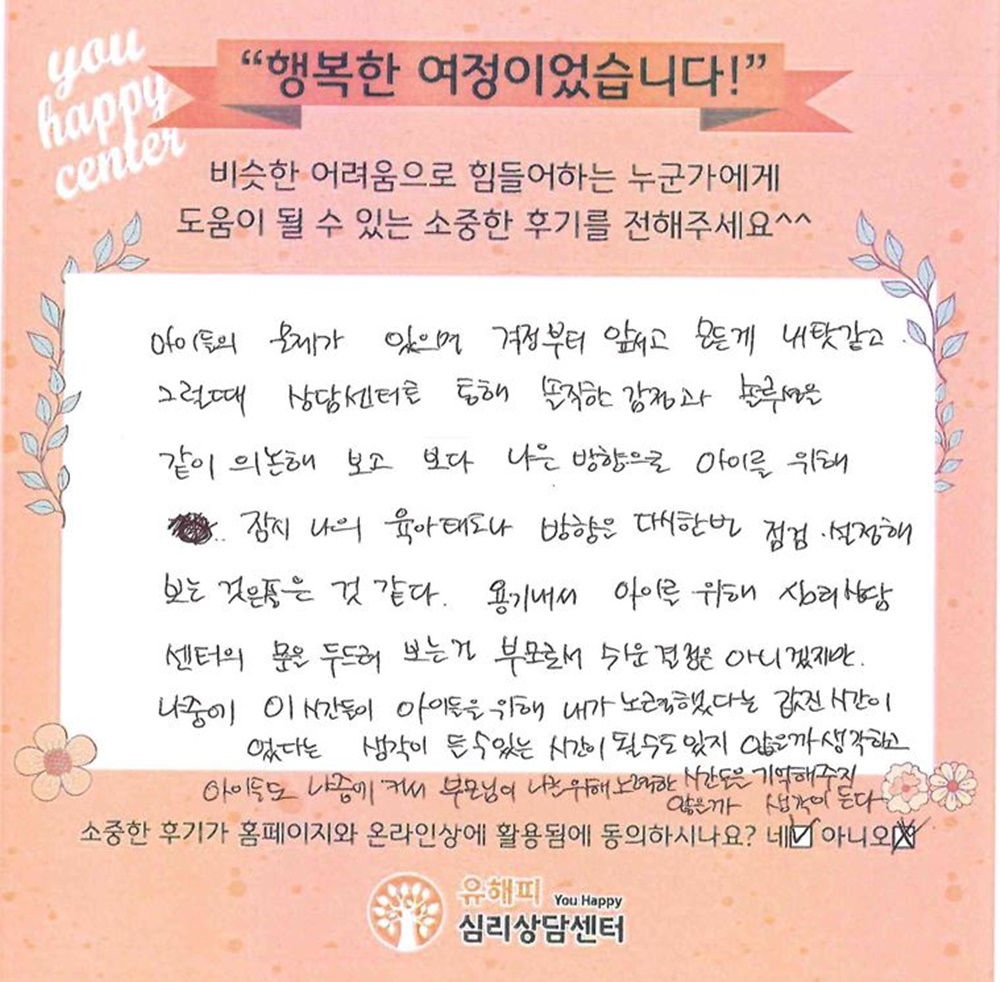 you
happy
center
“행복한 여정이었습니다!”
비슷한 어려움으로 힘들어하는 누군가에게
도움이 될 수 있는 소중한 후기를 전해주세요^^
아이들의 문제가 있으면 걱정부터 앞서고 모든게 내탓같고.
그럴때 상담센터를 통해 솔직한 감정과 솔루션을
같이 의논해 보고 보다 나은 방향으로 아이를 위해
잠시 나의 육아태도나 방향을 다시한번 점검·설정해
보는 것은 좋은 것 같다. 용기내서 아이를 위해 심리상담
센터의 문을 두드려 보는건 부모로서 쉬운 결정은 아니겠지만.
나중에 이 시간들이 아이들을 위해 내가 노력했었다는 값진 시간이
었다는 생각이 든수있는 시간이 될수도 있지 않을까 생각하고
아이들도 나중에 커서 부모님이 나를위해 노력한 시간들을 기억해주지
않을까 생각이 든다
소중한 후기가 홈페이지와 온라인상에 활용됨에 동의하시나요? 네☑ 아니오☒
유해피 You Happy
심리상담센터